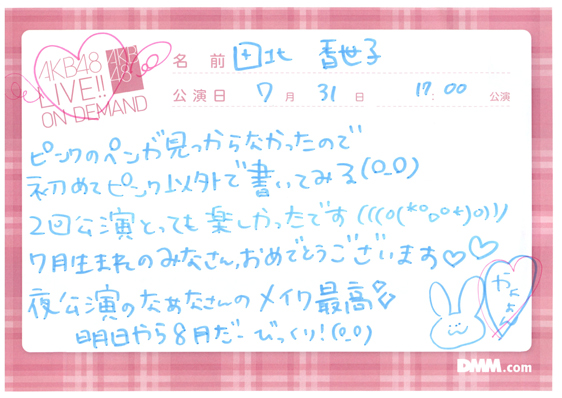 AKB48
LIVE!!
ON DEMAND
AKB
48
名前 田北 香世子
公演日 7月 31日 17:00 公演
ピンクのペンが見つからなかったので
初めてピンク以外で書いてみる(0_0)
2回公演とっても楽しかったです(((o(*°。°*)o)))
7月生まれのみなさん、おめでとうございます♡♡
夜公演のなぁなさんのメイク最高
明日から8月だーびっくり!(0_0)
DMM.com